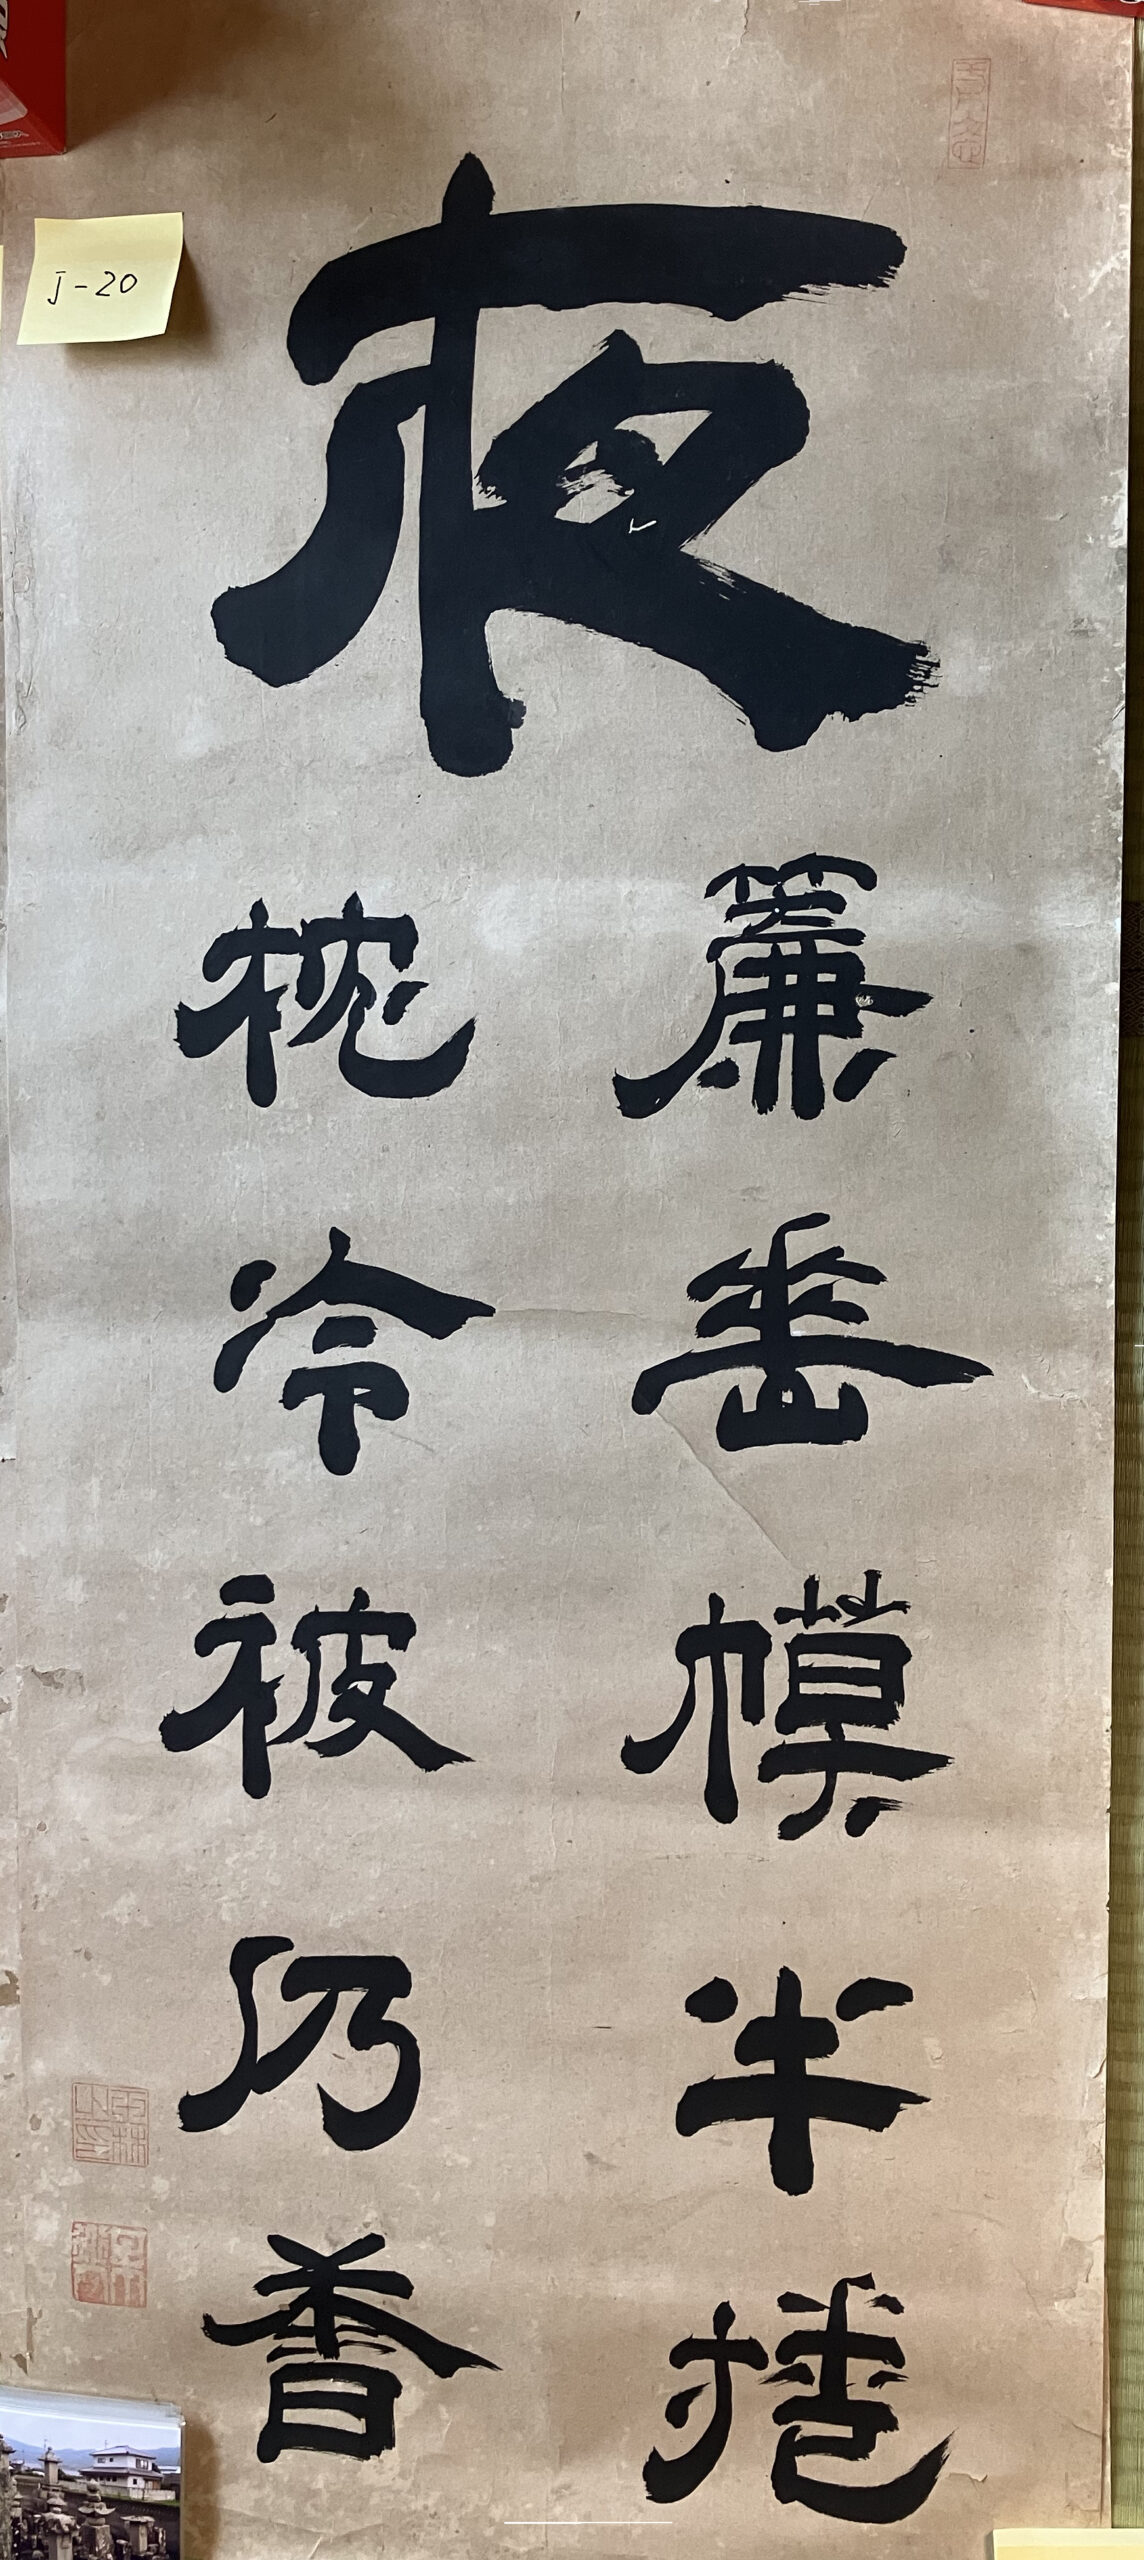 夜
簾垂幙半捲
枕冷被仍香
J-20